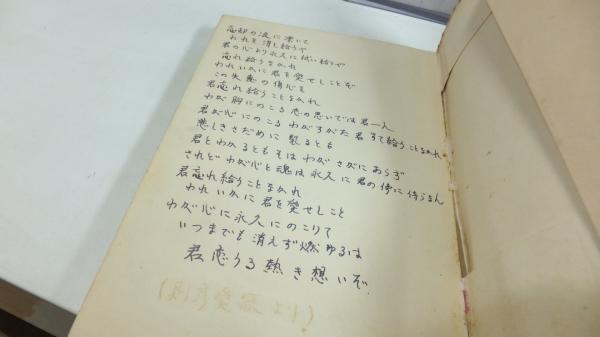 忘却の波に漂いて
われを消し給うや
君の心より永久に拭い給うや
忘れ給うなかれ
われいかに君を愛せしことぞ
この失恋の傷心を
君忘れ給うことなかれ
わが胸にのこる恋の思いでは君一人
君が心にのこるわがすがた君すて給うことなかれ
悲しきさだめに裂るとも
君とわかるともそはわがさがにあらず
されどわが心と魂は永久に君の傍に侍らなん
君忘れ給うことなかれ
われいかに君を愛せしこと
わが心に永久にのこりて
いつまでも消えず燃ゆるは
君恋うる熱き想いぞ
より